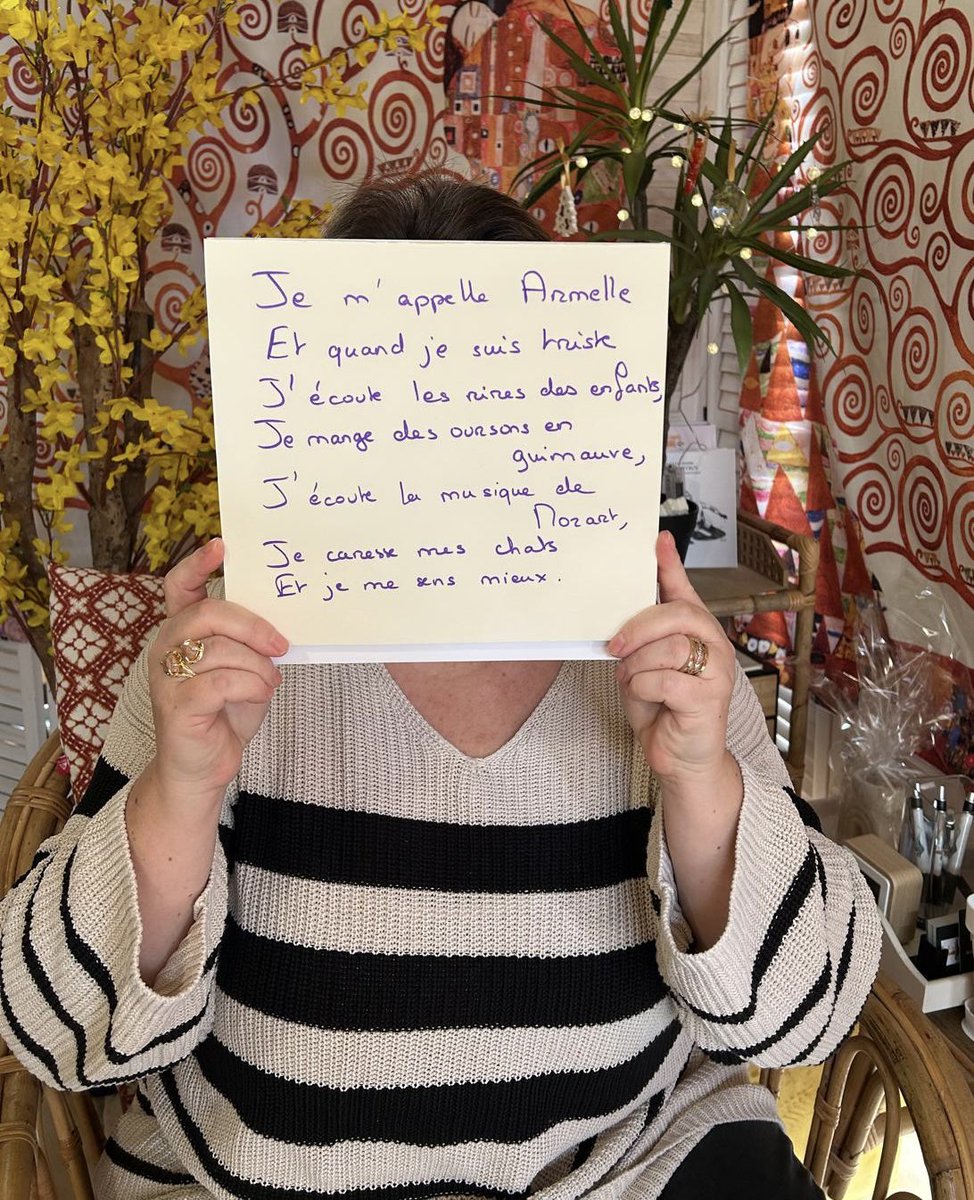 Je m'appelle Armelle
Et quand je suis triste
J'écoute les rires des enfants,
Je mange des oursons en
guimauve,
J'écoute la musique de
Mozart,
Je caresse mes chats
Et je me sens mieux.